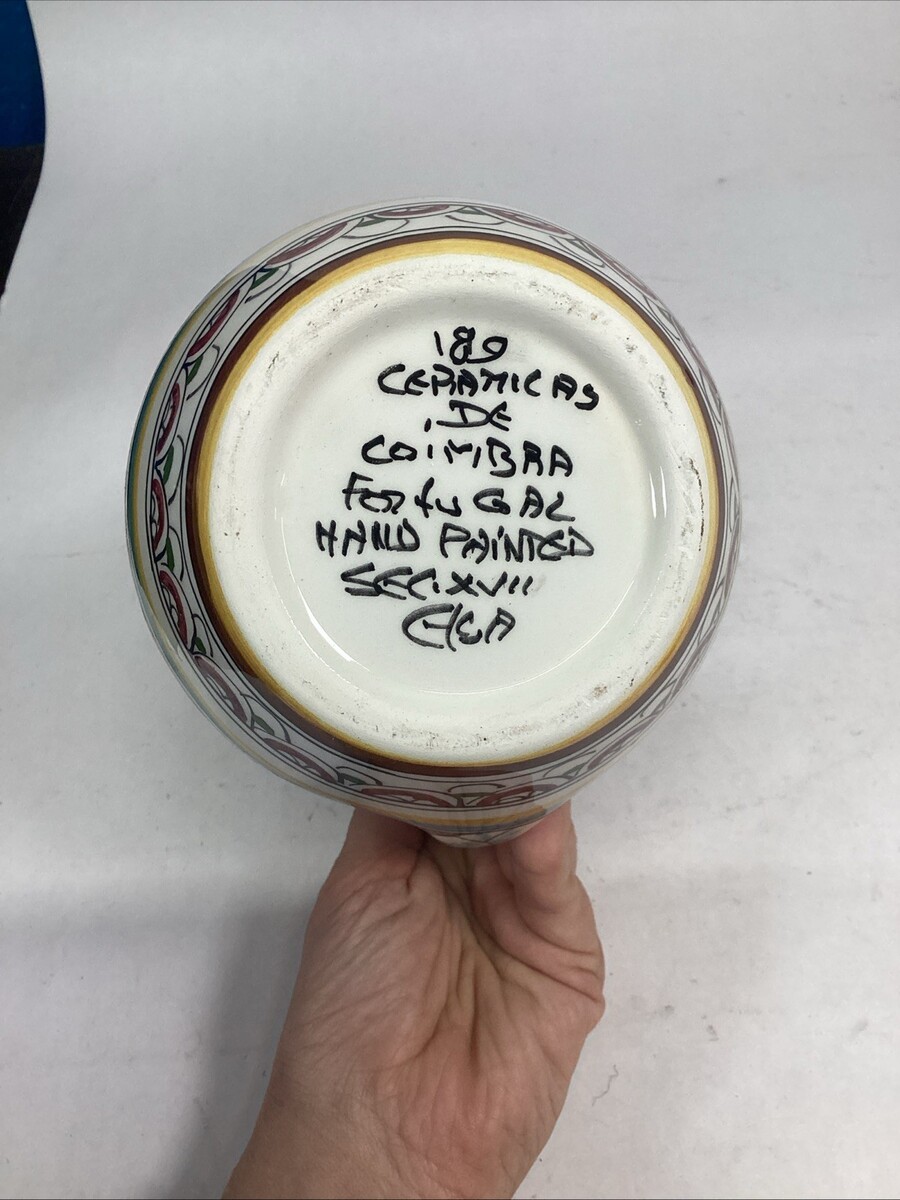 189
CERAMICAS
DE
COIMBRA
PORtuGAL
HAND PAINTED
SEC.XVII